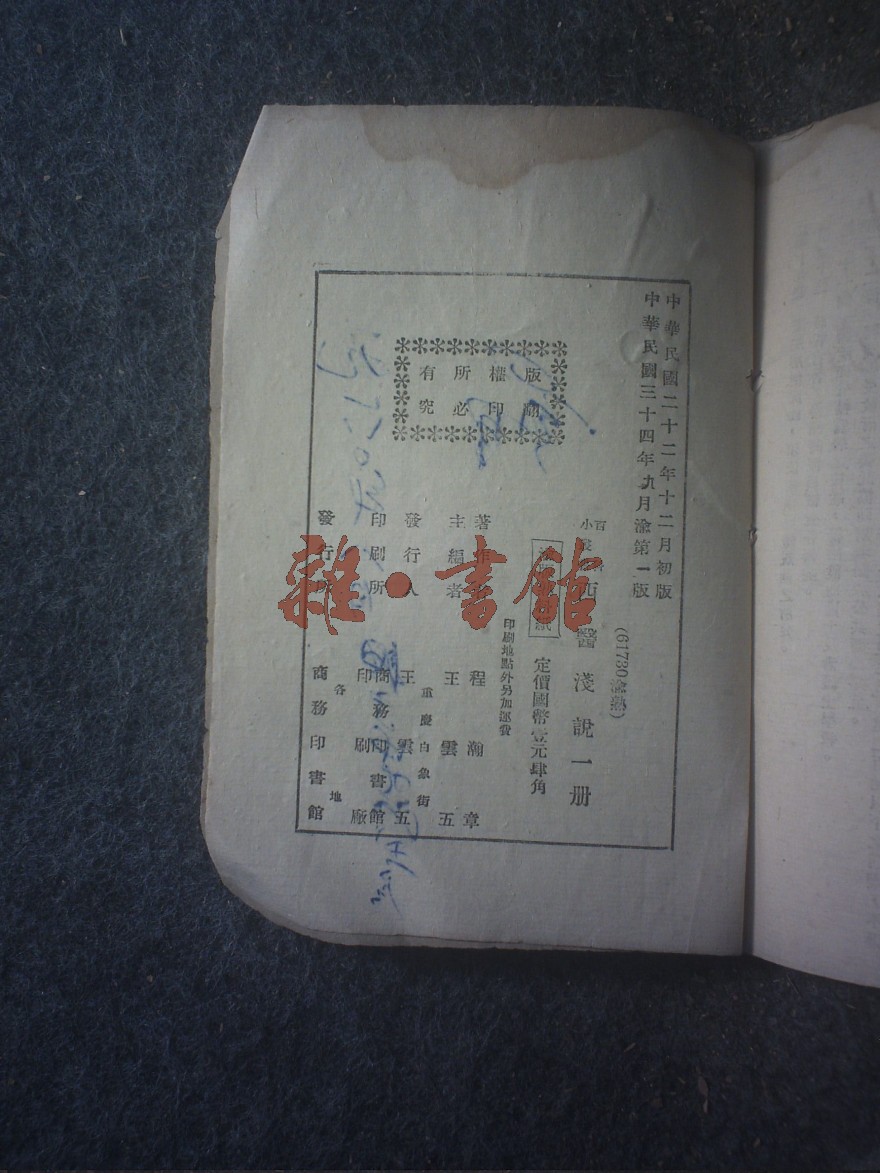 中華民國二十二年十二月初版
中華民國三十四年九月渝第一版
(61730渝熟)
小百
西醫淺說一册
定價國幣壹元肆角
印刷地點外另加運費
版權所有
翻印必究
著 程瀚章
主編者 王雲五
重慶白象街
發行人 王雲五
印刷所 商務印書館
印刷廠
各地
發行 商務印書館
雜·書館